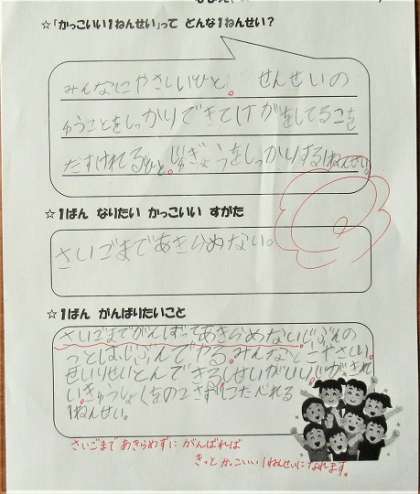 ☆「かっこいい1ねんせい」って どんな1ねんせい？
みんなにやさしいひと。 せんせいの
ゆうことをしっかりできてけがをしてるこを
たすけれてるひと。じゅぎょうをしっかりする1ねんせい。
☆1ばん なりたい かっこいい すがた
さいごまであきらめない。
☆1ばん がんばりたいこと
さいごまでがんばってあきらめない
じぶんでやる。みんな
せいりせいとんできる
きゅうしょくをのこさずにたべれる
1ねんせい。
さいごまで あきらめずに がんばれば
きっと かっこいい 1ねんせいに なれます。